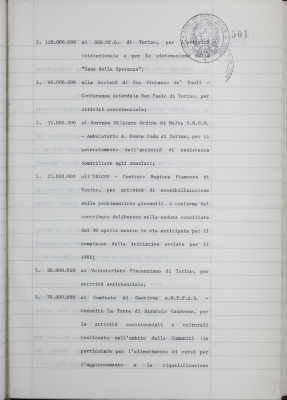 501
L. 150.000.000 al SER.MI.G. di Torino, per l'attività
istituzionale e per la sistemazione della
"Casa della Speranza";
L. 40.000.000 alla Società di San Vincenzo de' Paoli -
Conferenza Aziendale San Paolo di Torino, per
attività assistenziale;
L. 35.000.000 al Sovrano Militare Ordine di Malta
- Ambulatorio A. Dante Coda di Torino, per il
potenziamento dell'attività di assistenza
domiciliare agli ammalati;
L. 25.000.000 all'UNICEF - Comitato Regione Piemonte di
Torino, per attività di sensibilizzazione
sulle problematiche giovanili. A conferma del
contributo deliberato nella seduta consiliare
del 30 aprile scorso in via anticipata per il
complesso delle iniziative avviate per il
L. 30.000.000 al Volontariato Vincenziano di Torino, per
attività assistenziale;
L. 70.000.000 al Comitato di Gestione A.N.F.F.A.S. -
Comunità La Torre di Rivarolo Canavese, per
le attività assistenziali e culturali
realizzate nell'ambito della Comunità (in
particolare per l'allestimento di corsi per
l'aggiornamento e la riqualificazione